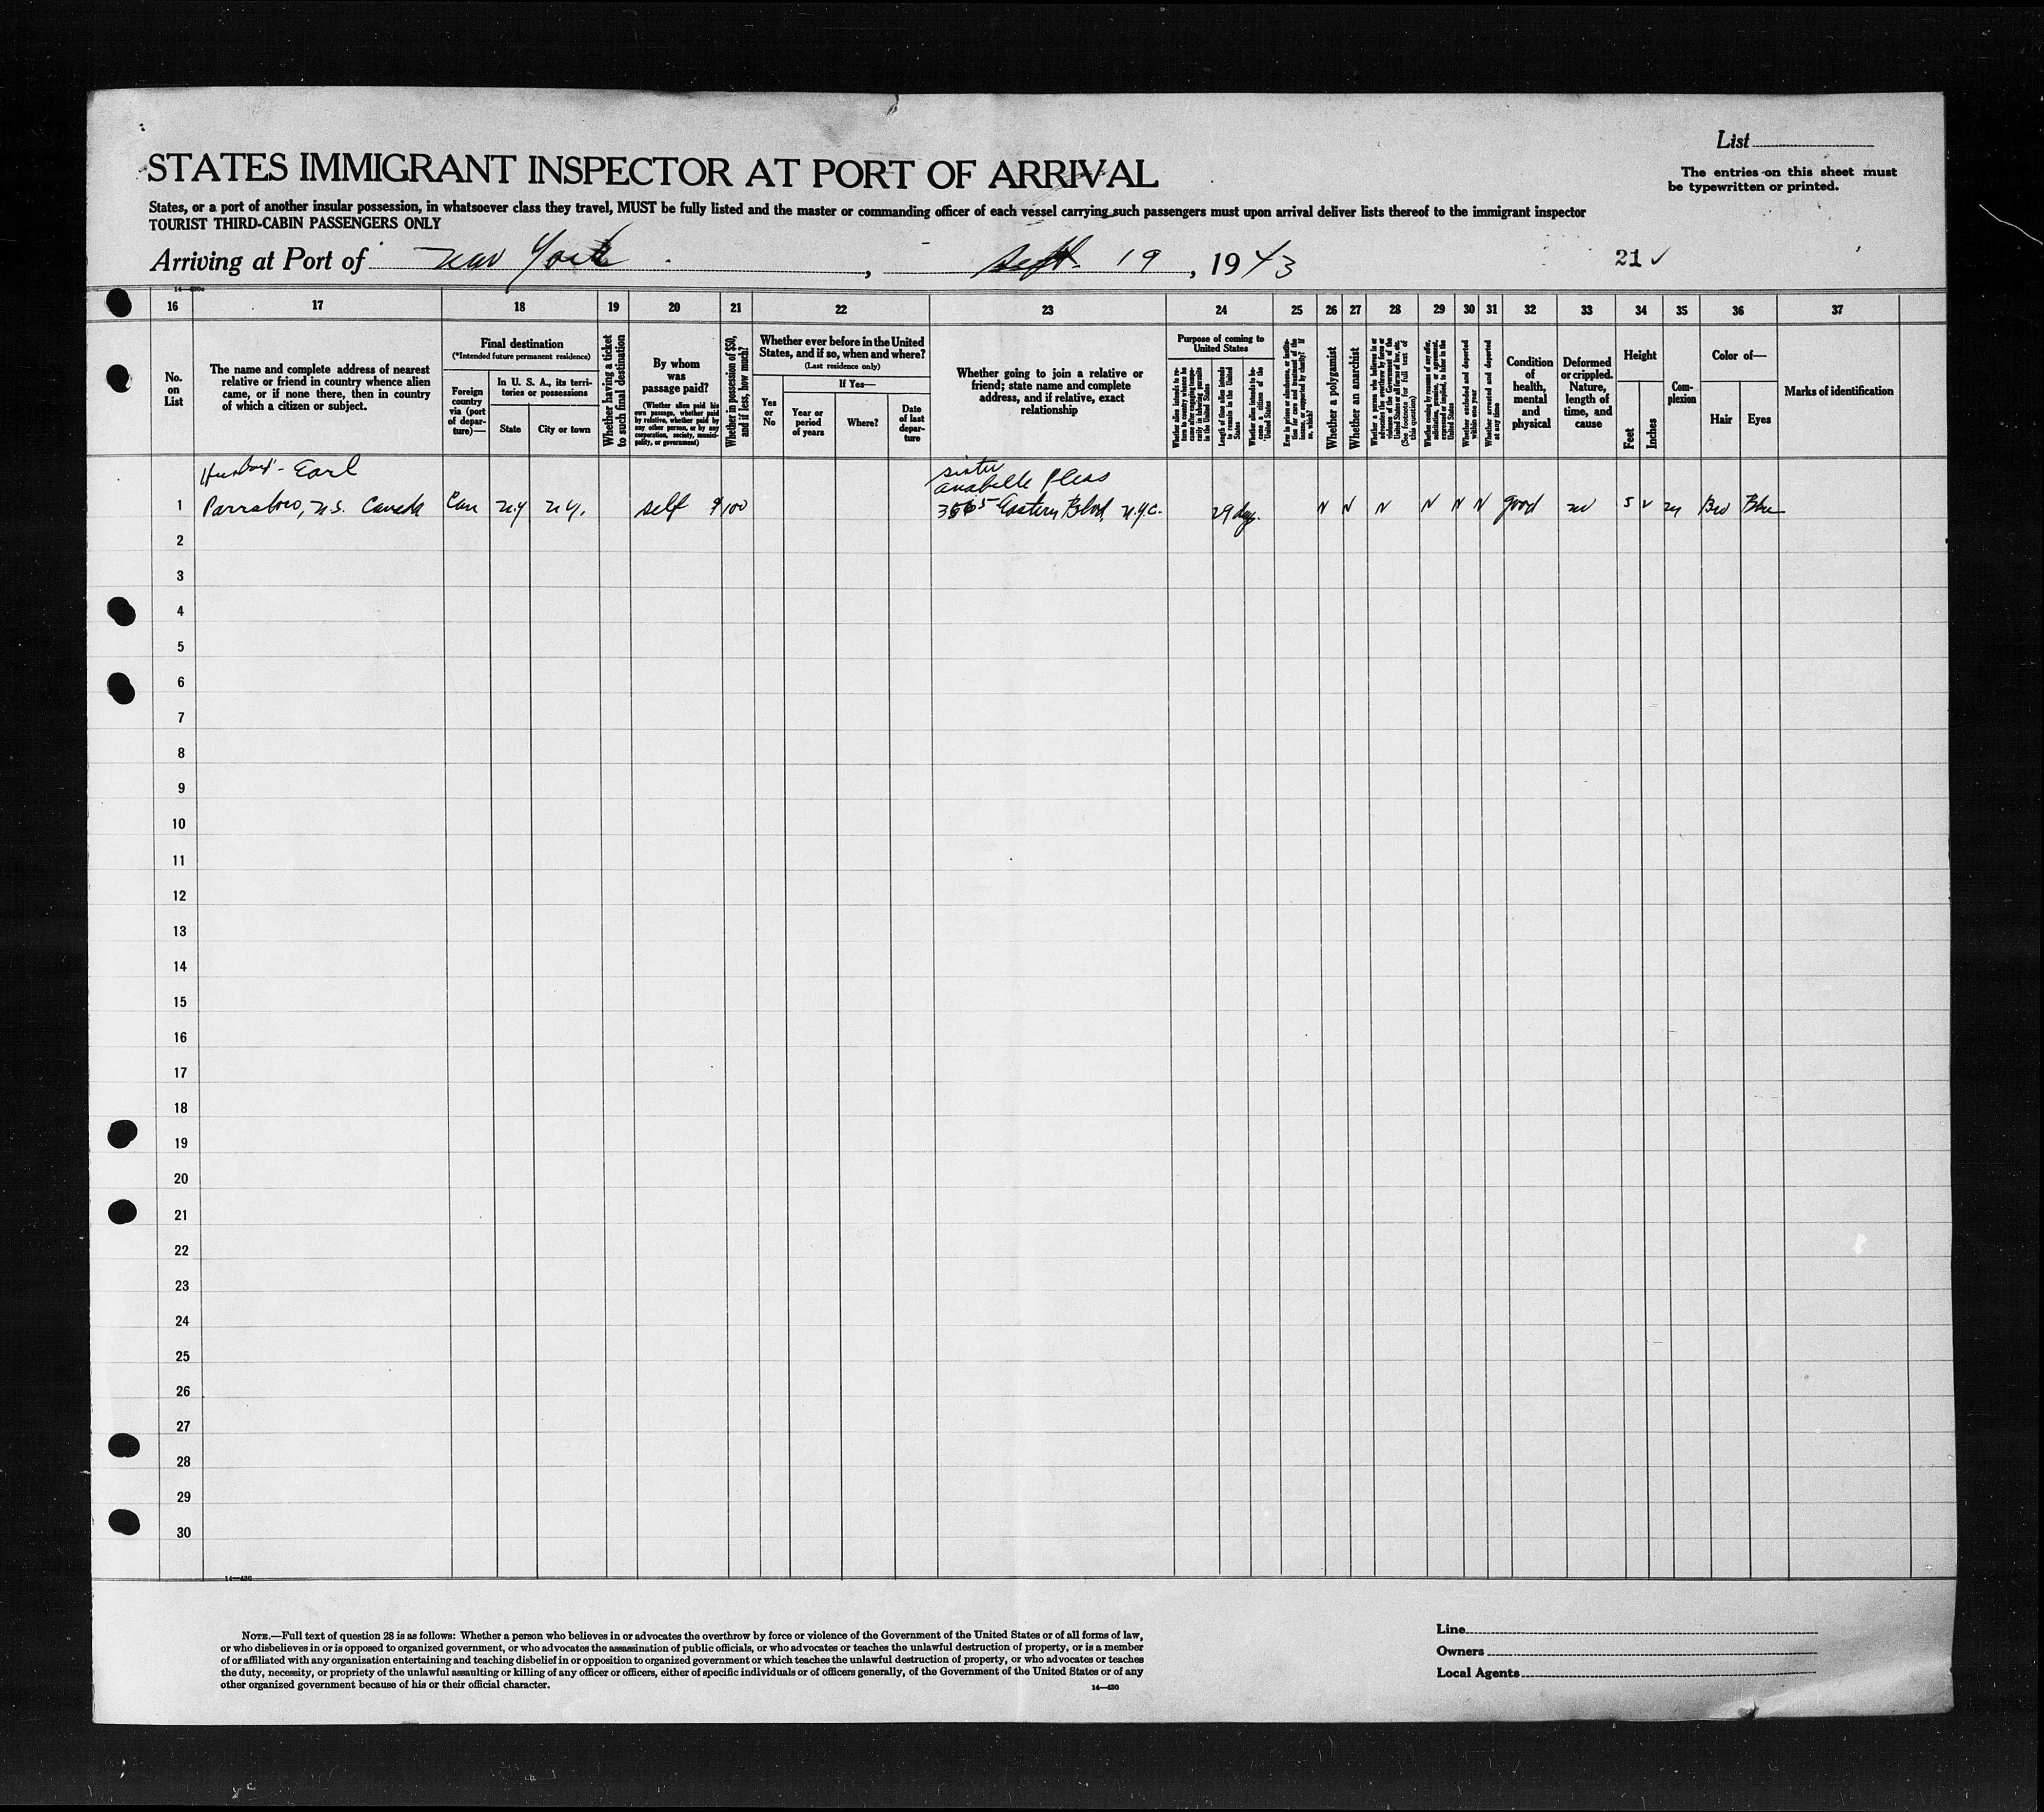 List
STATES IMMIGRANT INSPECTOR AT PORT OF ARRIVAL
The entries on this sheet must
be typewritten or printed.
States, or a port of another insular possession, in whatsoever class they travel, MUST be fully listed and the master or commanding officer of each vessel carrying such passengers must upon arrival deliver lists thereof to the immigrant inspector
TOURIST THIRD-CABIN PASSENGERS ONLY
Arriving at Port of New York, Sept. 19, 1943
21 ✓
16 17 18 19 20 21 22 23 24 25 26 27 28 29 30 31 32 33 34 35 36 37
No.
on
List
The name and complete address of nearest
relative or friend in country whence alien
came, or if none there, then in country
of which a citizen or subject.
Final destination
(*Intended future permanent residence)
Foreign
country
via (port
of depar-
ture)—
In U. S. A., its terri-
tories or possessions
State
City or town
Whether having a ticket
to such final destination
By whom
was
passage paid?
(Whether alien paid his
own passage, whether paid
by relative, whether paid by
any other person, or by any
corporation, society, munici-
pality, or government)
Whether in possession of $50,
and if less, how much?
Whether ever before in the United
States, and if so, when and where?
(Last residence only)
Yes
or
No
If Yes—
Year or
period
of years
Where?
Date
of last
depar-
ture
Whether going to join a relative or
friend; state name and complete
address, and if relative, exact
relationship
Purpose of coming to
United States
Whether alien intends to re-
turn to country whence he
came after engaging tempo-
rarily in laboring pursuits
in the United States
Length of time alien intends
to remain in the United
States
Whether alien intends to be-
come a citizen of the
United States
Ever in prison or almshouse, or institu-
tion for care and treatment of the
insane, or supported by charity? If
so, which?
Whether a polygamist
Whether an anarchist
Whether a person who believes in or
advocates the overthrow by force or
violence of the Government of the
United States or all forms of law, etc.
(See footnote for full text of
this question)
Whether coming by reason of any offer,
solicitation, promise, or agreement,
expressed or implied, to labor in the
United States
Whether excluded and deported
within one year
Whether arrested and deported
at any time
Condition
of
health,
mental
and
physical
Deformed
or crippled.
Nature,
length of
time, and
cause
Height
Feet
Inches
Com-
plexion
Color of—
Hair
Eyes
Marks of identification
Husband - Earl
sister
Anabelle Pleas
1 Parrsboro, N.S. Canada Can N.Y N.Y. self $100 3565 Eastern Blvd, N.Y.C. 29 days. N N N N N N good no 5 Bro Blue
2
3
4
5
6
7
8
9
10
11
12
13
14
15
16
17
18
19
20
21
22
23
24
25
26
27
28
29
30
14—430
NOTE.—Full text of question 28 is as follows: Whether a person who believes in or advocates the overthrow by force or violence of the Government of the United States or of all forms of law,
or who disbelieves in or is opposed to organized government, or who advocates the assassination of public officials, or who advocates or teaches the unlawful destruction of property, or is a member
of or affiliated with any organization entertaining and teaching disbelief in or opposition to organized government or which teaches the unlawful destruction of property, or who advocates or teaches
the duty, necessity, or propriety of the unlawful assaulting or killing of any officer or officers, either of specific individuals or of officers generally, of the Government of the United States or of any
other organized government because of his or their official character.
14—430
Line
Owners
Local Agents